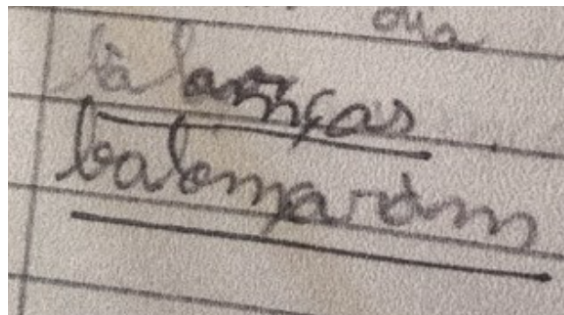 dia
balanças
balançaram